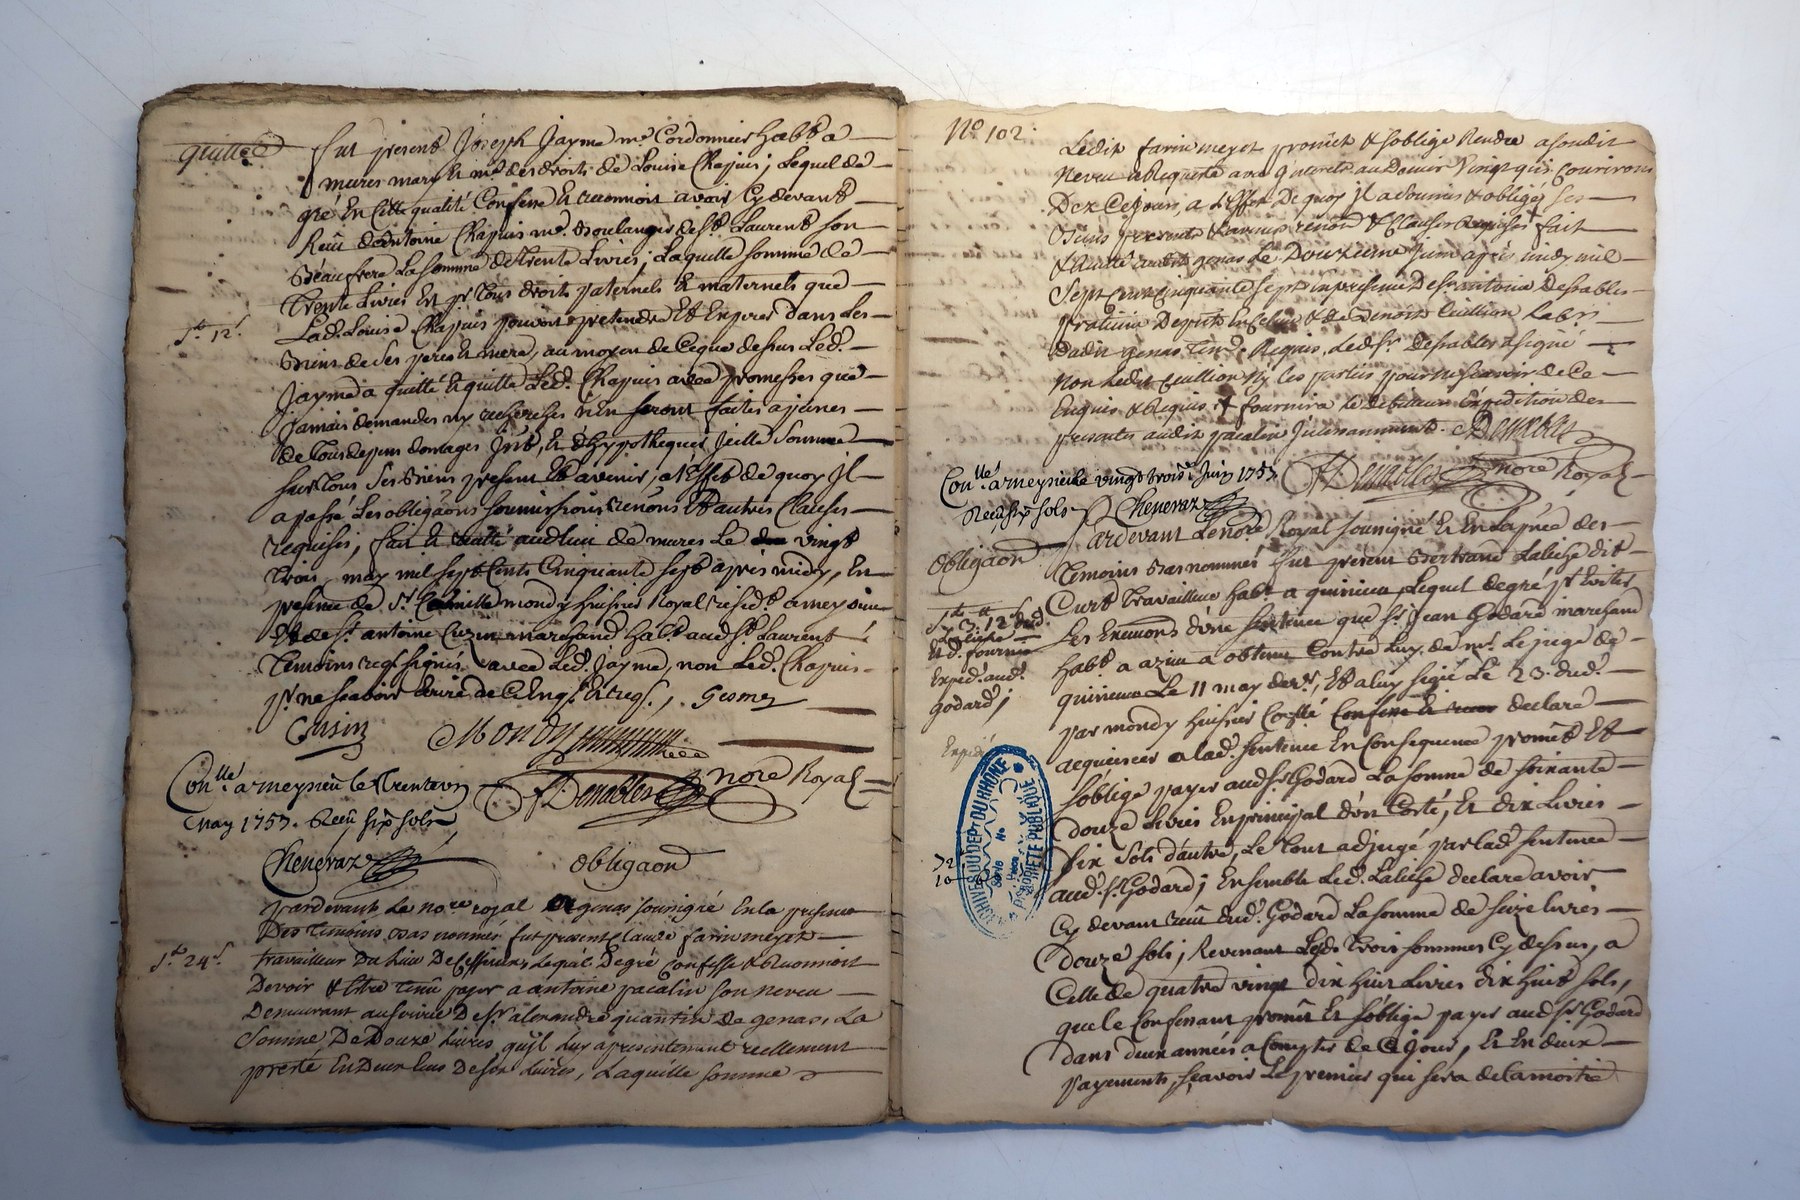 quittce
fut present Joseph Jayme me. Cordonnier habt a
mures mary & me des droits de Louise Chapuis; Lequel de
gré En Cette qualité Confesse & reconnoit avoir Cy devant
Reçû d'antoine Chapuis me. Boulanger de st. Laurent son
Beaufrere La somme de trente Livres; Laquelle somme de
trente Livres Est pr. tous droits paternels & maternels que
Lad. Louise Chapuis pouvoit pretendre Et Esperer dans Les
st. 12s.
Biens de Ses pere & mere, au moyen de Ceque dessus Led.
Jayme a quitté & quitte Led. Chapuis avec promesses que
Jamais demandes ny recherches n'En seront faites a peines
de tous depens domages Intt, & d'hypothequer Jcelle Somme
sur tous Ses Biens present Et avenir, a L'Effet de quoy Jl
a passé Les obligaons soumissions renons Et autres Clauses
requises, fait & audlieu de mures Le vingt
trois may mil sept Cents Cinquante sept après midy, En
presence de Sr. mondy huissier Royal residt. a meyzieu
Et de sr. antoine Cuzin marchand habt. aud st. Laurent
temoins signés avec Led. Jayme, non Led. Chapuis
pr. ne scavoir Ecrire de
Cusin Mondy
Conllé a meyzieu le trente un
Denables nore Royal
may 1757. Reçû six sols
Cheneraz
obligaon
pardevant Le nore royal a genas soussigné En la presence
Des temoins Bas nommés fut present Claude farin meyet
st. 24s.
travailleur Du Lieu De Lequel De gré Confesse & Reconnoit
Devoir & Etre tenu payer a antoine pacalin son neveu
Demeurant au service De sr alexandre quantin de genas, La
somme De Douze Livres quil Luy a presentement reellement
presté En Deux Ecus De six Livres, Laquelle somme
No 102.
Ledit farin meyet promet & soblige Rendre asondit
Neveu a Requeste avec Au Denier Vingt qui Couriront
Dez Cejour, a L'Effet De quoy Jl a soumis & obligé ses
Biens presents & avenir renon & Clauses Requises fait
& audit genas Le Douzieme Juin après midy mil
Sept Cent Cinquante Sept in presence De sr antoine Desvables
praticien & de Benoit Cuillion habt
Dudit genas Requis, Ledt sr. Desvables a signé
Non Ledit Cuillion Ny Les parties pour ne scavoir de Ce
Enquis & Requis & fournira Le debiteur Expedition des
presentes audit pacalin
Denables nore Royal
Conllé. a meyzieu Le vingt trois Juin 1757
Reçû six sols Cheneraz
obligaon
Pardevant Le nore Royal soussigné & En La pnce des
temoins Bas nommés fut present Bertrand Laliche dit
Curt travailleur habt a quirieu, Lequel de gré pr. Eviter
Les Executions d'une sentence que sr. Jean Godard marchand
habt a azieu a obtenu Contre Luy de mr. Le juge de
quirieu Le 11 may derr., Et a luy sigié Le 23. dud.
par mondy huissier declare
acquiescer a lad. sentence En Consequence promet Et
soblige payer aud sr. Godard La somme de soixante
douze Livres En principal d'un Costé, Et dix Livres
six Sols d'autre, Le tout adjugé par lad sentence
aud. sr. Godard; Ensemble Led. Laliche declare avoir
Cy devant reçû dud. Godard La somme de seize Livres
douze sols; Revenant Lesd. trois sommes Cy dessus, a
Celle de quatre vingt dix huit Livres dix huit sols,
que Le Confessant promet Et soblige payer aud sr. Godard
dans deux années a Compter de Cejour, & En deux
payements, scavoir Le premier qui sera de la moitié
Et d. fournie
Expedn. aud.
godard;
Expedié
ARCHIVES DU DEPT DU RHONE
PROPRIETE PUBLIQUE